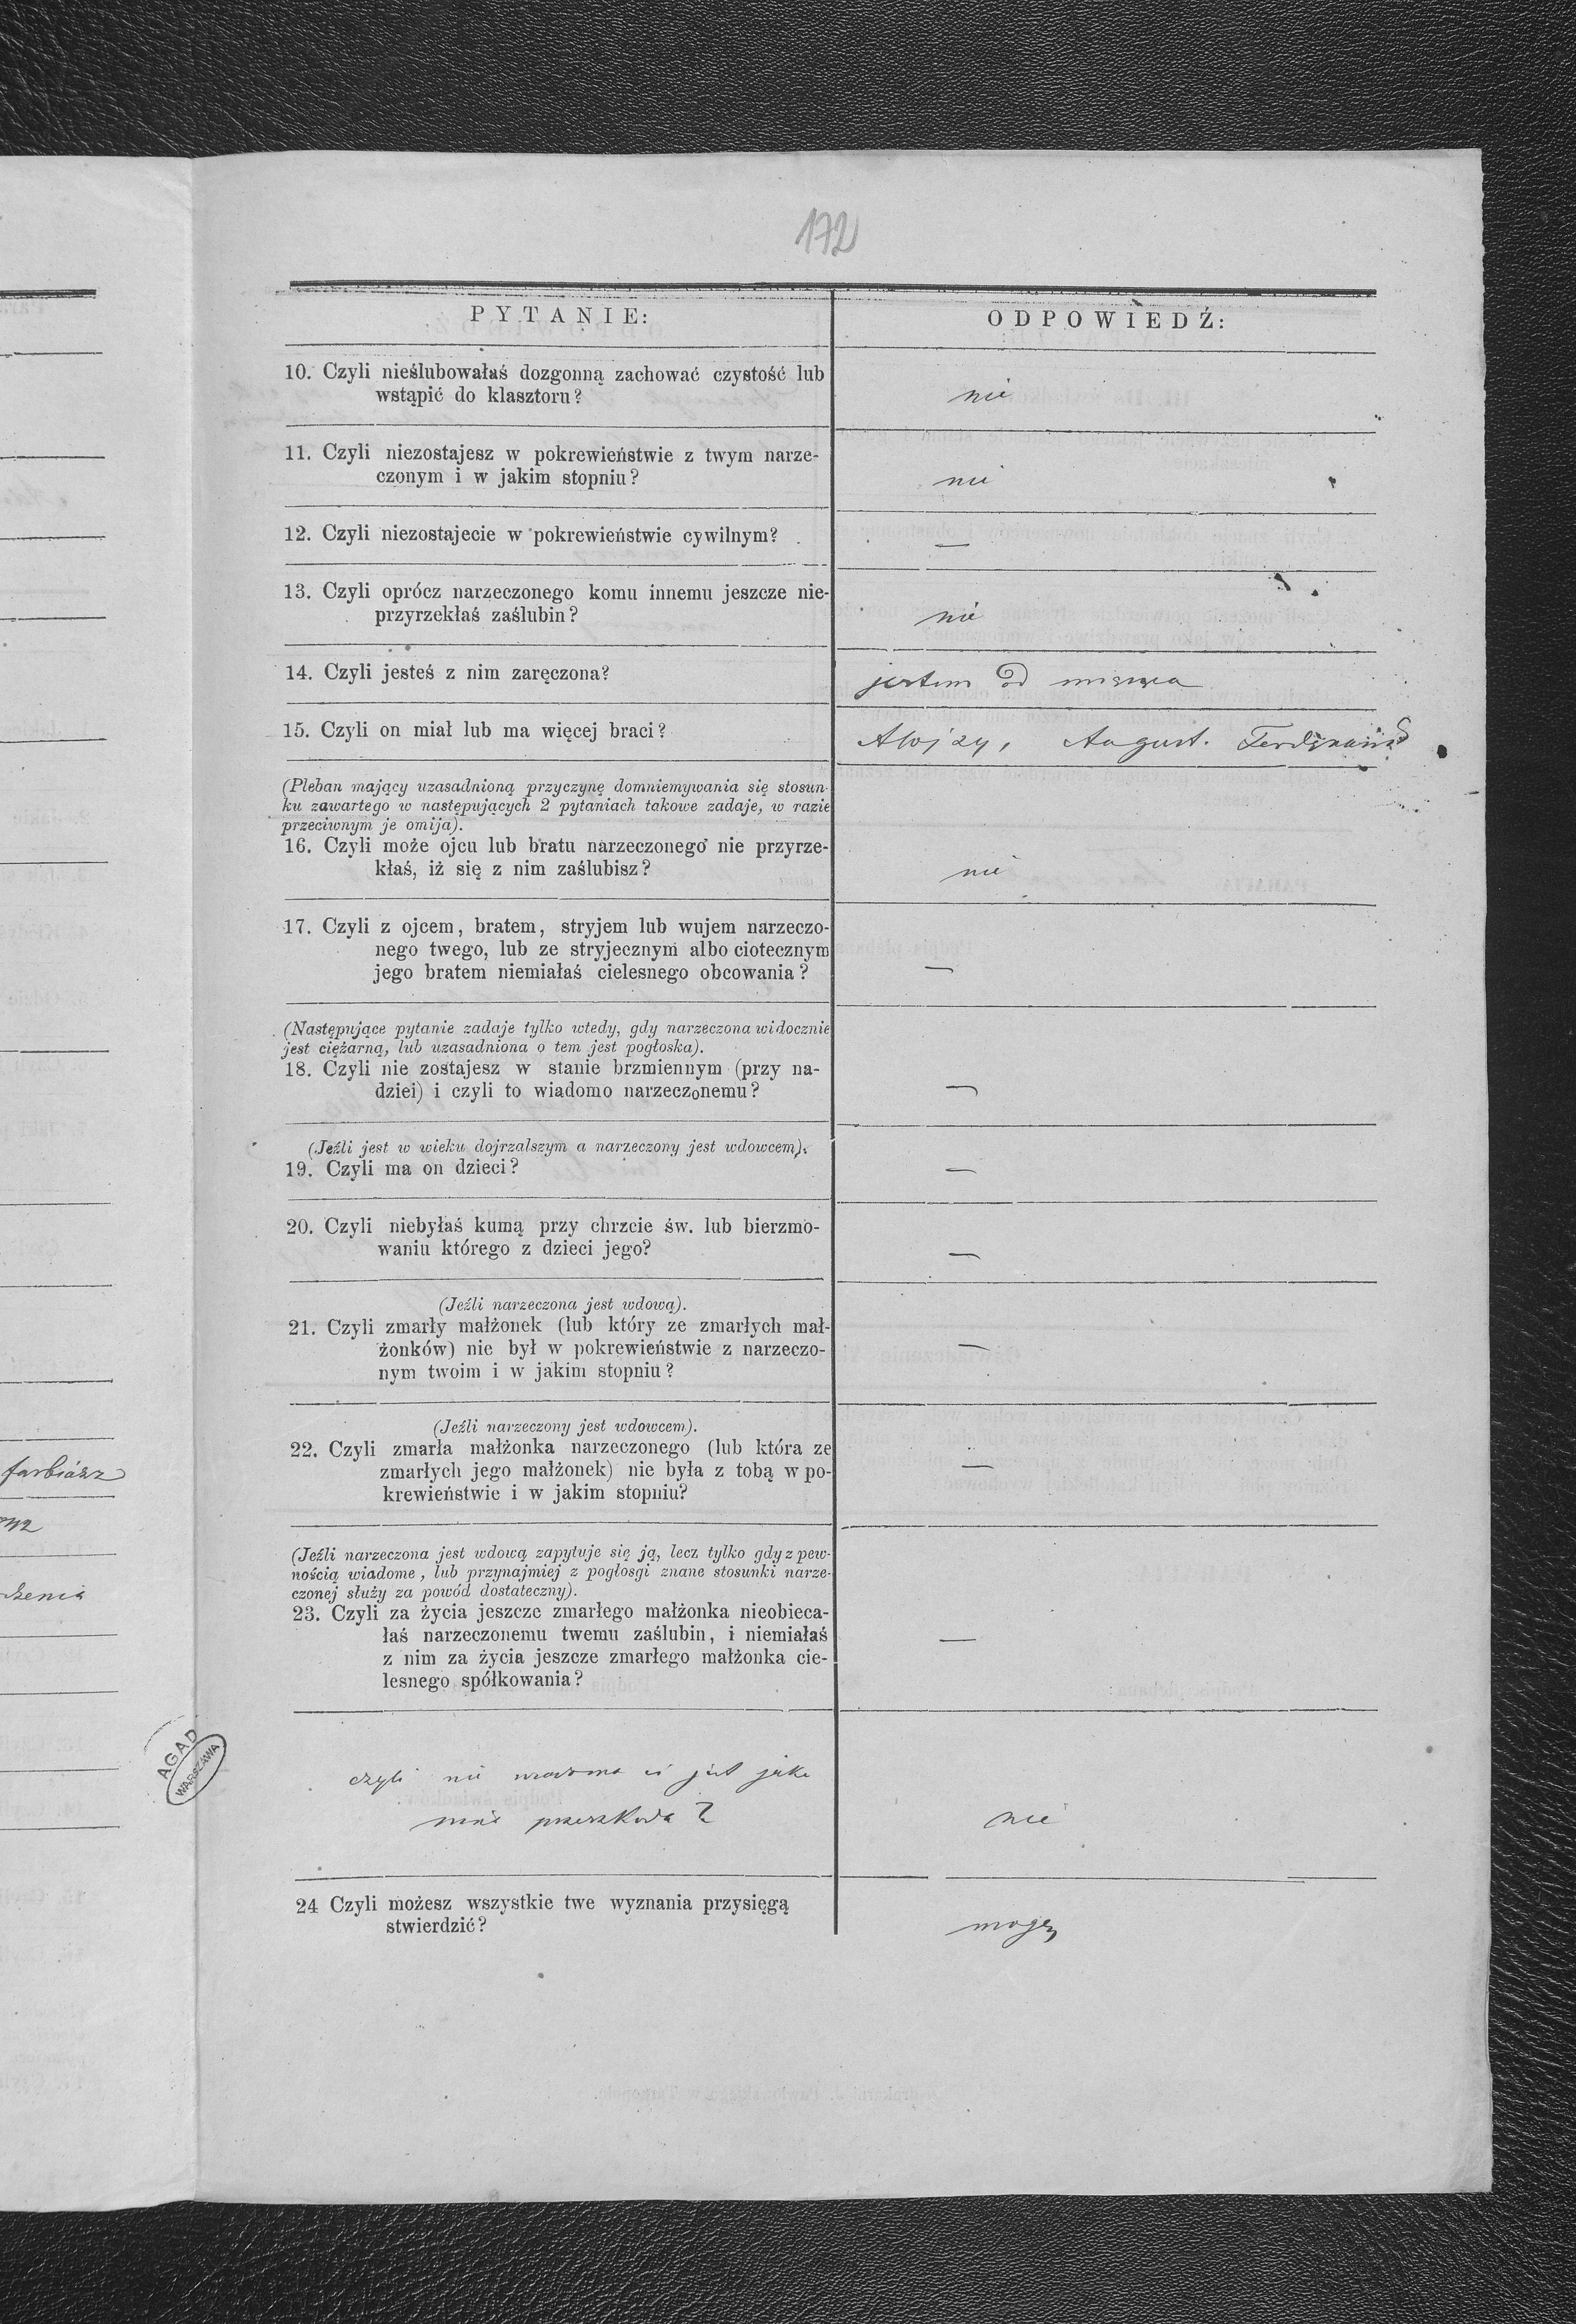 172
PYTANIE:
ODPOWIEDŹ:
10. Czyli nieślubowałaś dozgonną zachować czystość lub
wstąpić do klasztoru?
nie
11. Czyli niezostajesz w pokrewieństwie z twym narze-
czonym i w jakim stopniu?
nie
12. Czyli niezostajecie w pokrewieństwie cywilnym?
—
13. Czyli oprócz narzeczonego komu innemu jeszcze nie-
przyrzekłaś zaślubin?
nie
14. Czyli jesteś z nim zaręczona?
jestem od miesiąca
15. Czyli on miał lub ma więcej braci?
Alojzy, August. Ferdynand
(Pleban mający uzasadnioną przyczynę domniemywania się stosun-
ku zawartego w następujących 2 pytaniach takowe zadaje, w razie
przeciwnym je omija).
16. Czyli może ojcu lub bratu narzeczonego nie przyrze-
kłaś, iż się z nim zaślubisz?
nie
17. Czyli z ojcem, bratem, stryjem lub wujem narzeczo-
nego twego, lub ze stryjecznym albo ciotecznym
jego bratem niemiałaś cielesnego obcowania?
—
(Następujące pytanie zadaje tylko wtedy, gdy narzeczona widocznie
jest ciężarną, lub uzasadniona o tem jest pogłoska).
18. Czyli nie zostajesz w stanie brzmiennym (przy na-
dziei) i czyli to wiadomo narzeczonemu?
—
(Jeźli jest w wieku dojrzalszym a narzeczony jest wdowcem).
19. Czyli ma on dzieci?
—
20. Czyli niebyłaś kumą przy chrzcie św. lub bierzmo-
waniu którego z dzieci jego?
—
(Jeźli narzeczona jest wdową).
21. Czyli zmarły małżonek (lub który ze zmarłych mał-
żonków) nie był w pokrewieństwie z narzeczo-
nym twoim i w jakim stopniu?
—
(Jeźli narzeczony jest wdowcem).
22. Czyli zmarła małżonka narzeczonego (lub która ze
zmarłych jego małżonek) nie była z tobą w po-
krewieństwie i w jakim stopniu?
—
(Jeźli narzeczona jest wdową zapytuje się ją, lecz tylko gdy z pew-
nością wiadome, lub przynajmiej z pogłosgi znane stosunki narze-
czonej służy za powód dostateczny).
23. Czyli za życia jeszcze zmarłego małżonka nieobieca-
łaś narzeczonemu twemu zaślubin, i niemiałaś
z nim za życia jeszcze zmarłego małżonka cie-
lesnego spółkowania?
—
czyli nie wiadoma ci jest jaka
inna przeszkoda?
nie
24 Czyli możesz wszystkie twe wyznania przysięgą
stwierdzić?
mogę
farbiarz
AGAD
WARSZAWA